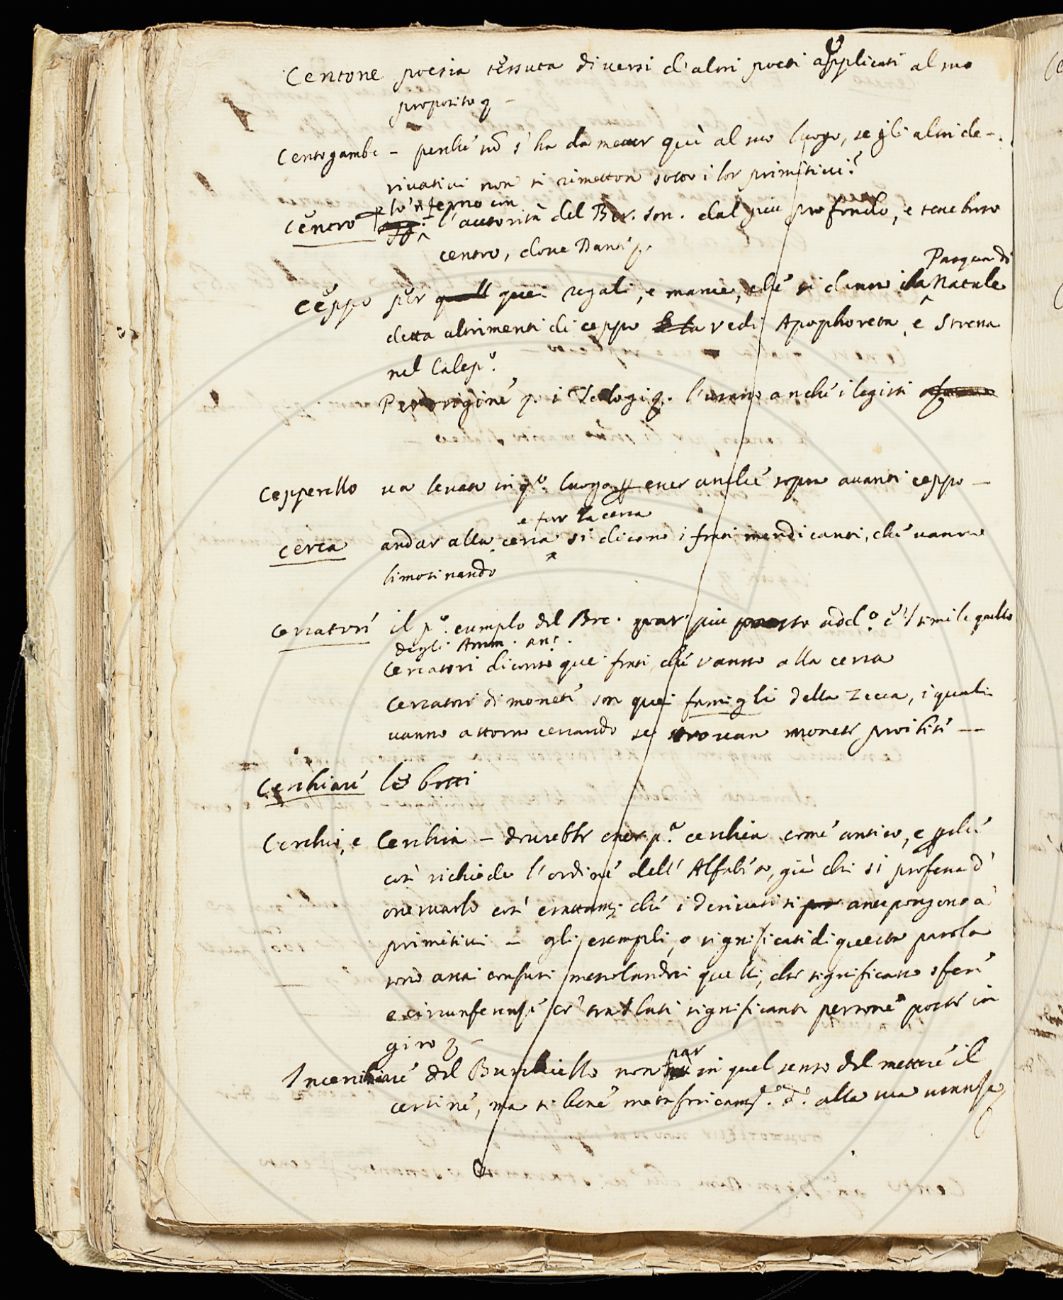 Centone poesia tessuta di versi d'altri poeti applicati al suo
proposito
Centogambe – perché nō s'ha da metter quì al suo luogo, se gli altri de-
rivativi non si rimetton sotto i lor primitivi?
Centro l'autorità del Bocc. son. dal più profondo, e tenebroso
per lo'nferno cin
centro, dove Dante
Ceppo per quei regali, e mancie, che si danno il Natale
Pasqua di
detta altrimenti di ceppo vedi Apophoreta, e Strena
nel Calep.
l'usano anche i legisti
Cepperello va levato in q.o luogo esser anche sopra avanti ceppo –
e far la cerca
cerca andar alla cerca si dicono i frati mendicanti, che vanno
limosinando
Cercatori il p.o esemplo del Boc. par più add.o è simile quello
degli Amm. ant.
Cercatori diconsi quei frati, che vanno alla cerca
Cercatori di monete son quei famigli della Zecca, i quali
vanno attorno cercando se trovan monete proibite –
Cerchiare le botti
Cerchio, e Cerchia – dovrebbe esser p.a cerchia come antico, e perché
così richiede l'ordine dell'Alfabeto, già che si professa d'
osservarlo così che i derivati si antepongono a'
primitivi – gli esempli, o significati di questa parola
sono assai confusi mescolandosi quelli, che significano sfere
e circunferenze co' traslati significanti persone poste in
giro
Incerchiare del Burchiello non par in quel senso del mettere il
cerchio, ma si bene alla sua usanza